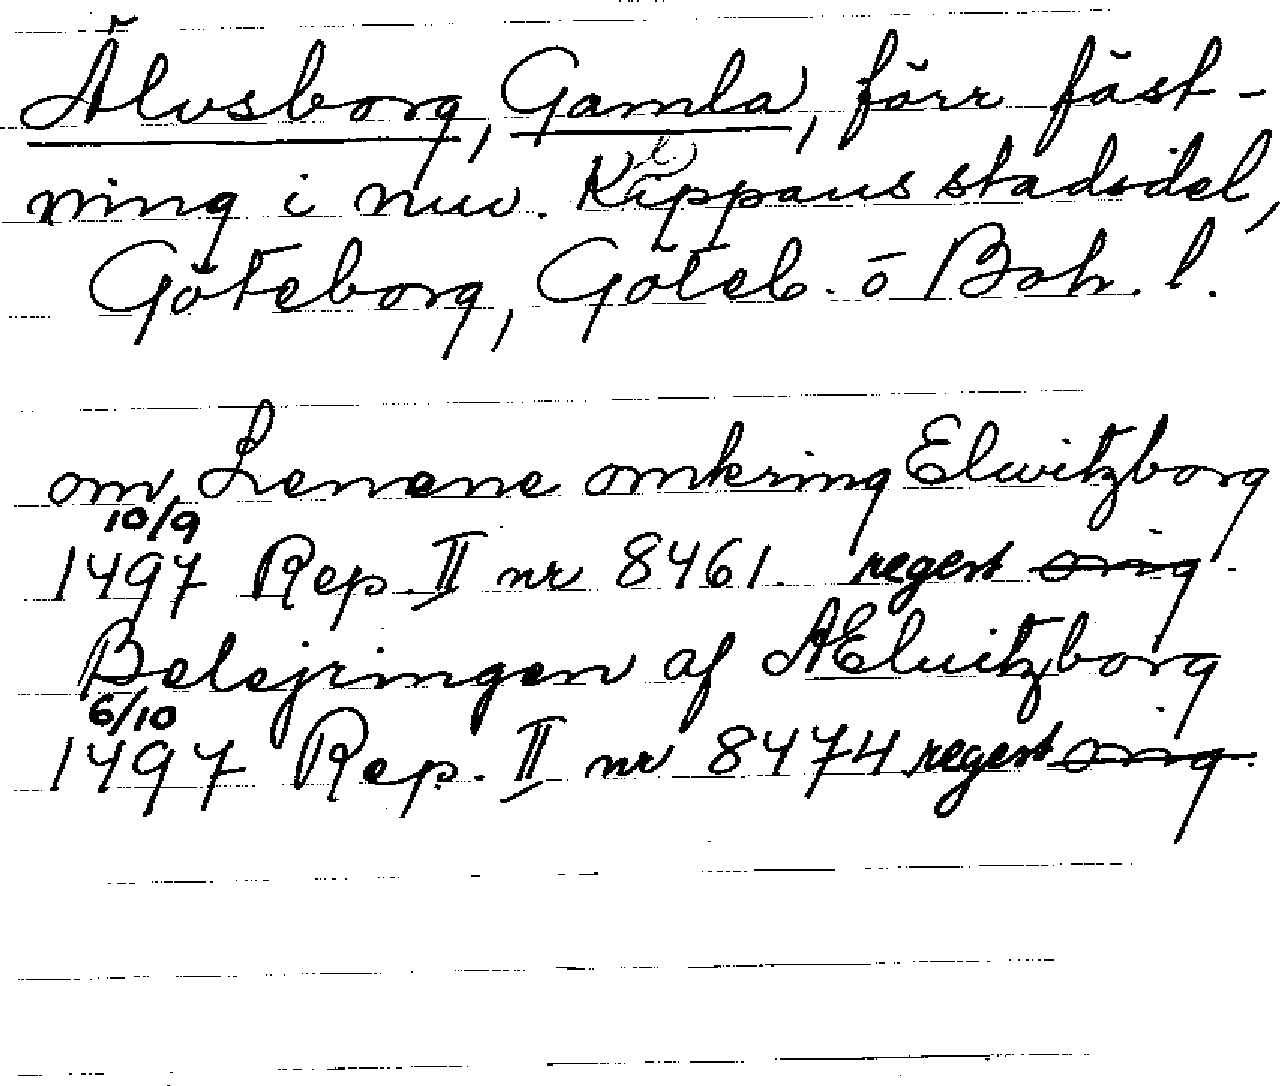 Älvsborg, Gamla, förr fäst-
ning i nuv. Klippans stadsdel,
Göteborg, Göteb. o Boh. l.
om Lenene omkring Elwitzborg
10/9
1497 Rep. II nr 8461. regest orig.
Belejringen af AElvitzborg
6/10
1497 Rep. II nr 8474 regest orig.